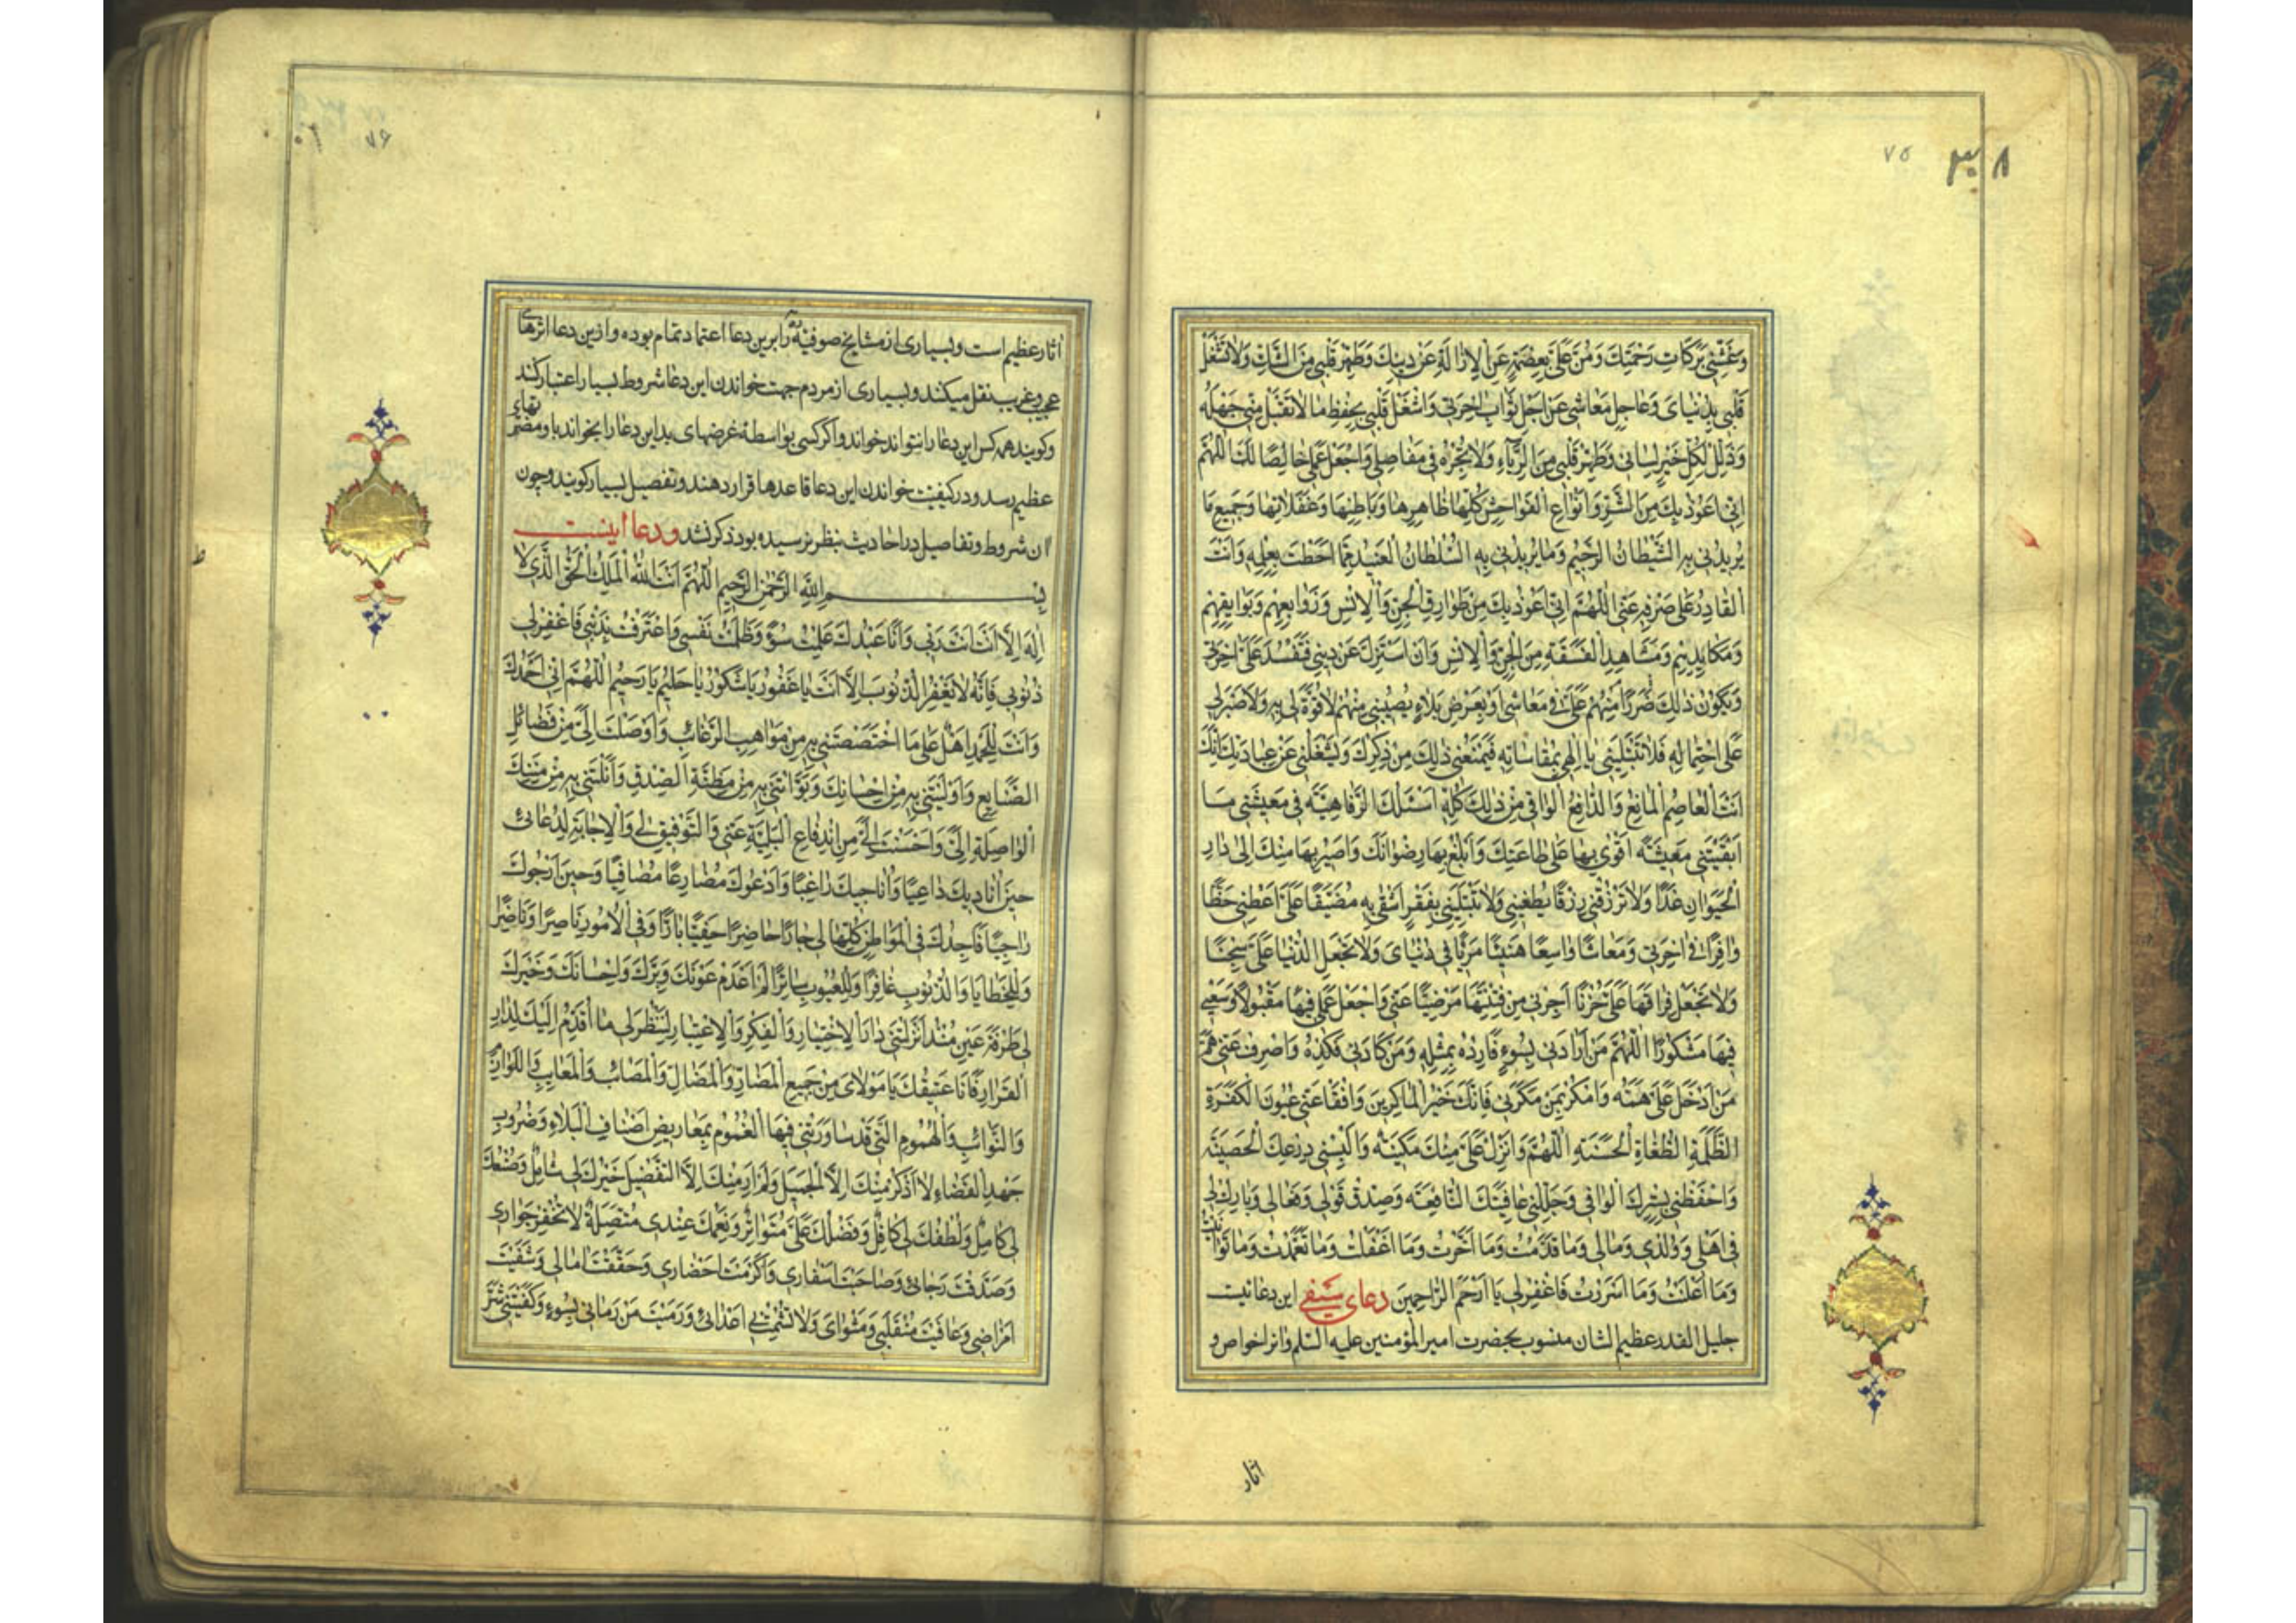 ۳۰۸
۷۵
وَغَشِّنِي بَرَكَاتِ رَحْمَتِكَ وَمُنَّ عَلَيَّ بِعِصْمَةٍ عَنِ الْإِزَالَةِ عَنْ دِينِكَ وَطَهِّرْ قَلْبِي مِنَ الشَّكِّ وَلَا تَشْغَلْ
قَلْبِي بِدُنْيَايَ وَعَاجِلِ مَعَاشِي عَنْ اجِلِ ثَوَابِ اخِرَتِي وَاشْغَلْ قَلْبِي بِحِفْظِ مَا لَا تَقْبَلُ مِنِّي جَهْلَهُ
وَذَلِّلْ لِكُلِّ خَيْرٍ لِسَانِي وَطَهِّرْ قَلْبِي مِنَ الرِّيَاءِ وَلَا تُجْرِهِ فِي مَفَاصِلِي وَاجْعَلْ عَمَلِي خَالِصًا لَكَ اَللّٰهُمَّ
اِنِّي اَعُوذُ بِكَ مِنَ الشَّرِّ وَاَنْوَاعِ الْفَوَاحِشِ كُلِّهَا ظَاهِرِهَا وَبَاطِنِهَا وَغَفَلَاتِهَا وَجَمِيعِ مَا
يُرِيدُنِي بِهِ الشَّيْطَانُ الرَّجِيمُ وَمَا يُرِيدُنِي بِهِ السُّلْطَانُ الْعَنِيدُ مِمَّا اَحَطْتَ بِعِلْمِهِ وَاَنْتَ
الْقَادِرُ عَلَى صَرْفِهِ عَنِّي اَللّٰهُمَّ اِنِّي اَعُوذُ بِكَ مِنْ طَوَارِقِ الْجِنِّ وَالْاِنْسِ وَزَوَابِعِهِمْ وَبَوَايِقِهِمْ
وَمَكَايِدِهِمْ وَمَشَاهِدِ الْفَسَقَةِ مِنَ الْجِنِّ وَالْاِنْسِ وَاَنْ اُسْتَزَلَّ عَنْ دِينِي فَتَفْسُدَ عَلَيَّ اخِرَتِي
وَيَكُونُ ذٰلِكَ ضَرَرًا مِنْهُمْ عَلَيَّ فِي مَعَاشِي اَوْ بِعَرَضِ بَلَاءٍ يُصِيبُنِي مِنْهُمْ لَا قُوَّةَ لِي بِهِ وَلَا صَبْرَ لِي
عَلَى احْتِمَالِهِ فَلَا تَبْتَلِيَنِّي يَا اِلٰهِي بِمُقَاسَاتِهِ فَيَمْنَعُنِي ذٰلِكَ مِنْ ذِكْرِكَ وَيَشْغَلُنِي عَنْ عِبَادَتِكَ اِنَّكَ
اَنْتَ الْعَاصِمُ الْمَانِعُ وَالدَّافِعُ الْوَاقِي مِنْ ذٰلِكَ كُلِّهِ اَسْئَلُكَ الرَّفَاهِيَّةَ فِي مَعِيشَتِي مَا
اَبْقَيْتَنِي مَعِيشَةً اَقْوٰى بِهَا عَلَى طَاعَتِكَ وَاَبْلُغُ بِهَا رِضْوَانَكَ وَاَصِيرُ بِهَا مِنْكَ اِلٰى دَارِ
الْحَيَوَانِ غَدًا وَلَا تَرْزُقْنِي رِزْقًا يُطْغِينِي وَلَا تَبْتَلِيَنِّي بِفَقْرٍ اَشْقٰى بِهِ مُضَيِّقًا عَلَيَّ اَعْطِنِي حَظًّا
وَافِرًا فِي اخِرَتِي وَمَعَاشًا وَاسِعًا هَنِيئًا مَرِيًّا فِي دُنْيَايَ وَلَا تَجْعَلِ الدُّنْيَا عَلَيَّ سِجْنًا
وَلَا تَجْعَلْ فِرَاقَهَا عَلَيَّ حُزْنًا اَجِرْنِي مِنْ فِتْنَتِهَا مَرْضِيًّا عَنِّي وَاجْعَلْ عَمَلِي فِيهَا مَقْبُولًا وَسَعْيِي
فِيهَا مَشْكُورًا اَللّٰهُمَّ مَنْ اَرَادَنِي بِسُوءٍ فَارِدْهُ بِمِثْلِهِ وَمَنْ كَادَنِي فَكِدْهُ وَاصْرِفْ عَنِّي هَمَّ
مَنْ اَدْخَلَ عَلَيَّ هَمَّهُ وَامْكُرْ بِمَنْ مَكَرَبِي فَاِنَّكَ خَيْرُ الْمَاكِرِينَ وَافْقَأْ عَنِّي عُيُونَ الْكَفَرَةِ
الظَّلَمَةِ الطُّغَاةِ الْحَسَدَةِ اَللّٰهُمَّ وَاَنْزِلْ عَلَيَّ مِنْكَ سَكِينَةً وَاَلْبِسْنِي دِرْعَكَ الْحَصِينَةَ
وَاحْفَظْنِي بِسِتْرِكَ الْوَاقِي وَجَلِّلْنِي عَافِيَتَكَ النَّافِعَةَ وَصَدِّقْ قَوْلِي وَفِعَالِي وَبَارِكْ لِي
فِي اَهْلِي وَوَلَدِي وَمَالِي وَمَا قَدَّمْتُ وَمَا اَخَّرْتُ وَمَا اَغْفَلْتُ وَمَا تَعَمَّدْتُ وَمَا تَوَانَيْتُ
وَمَا اَعْلَنْتُ وَمَا اَسْرَرْتُ فَاغْفِرْ لِي يَا اَرْحَمَ الرَّاحِمِينَ دعای سیفی این دعائیست
جلیل القدر عظیم الشان منسوب بحضرت امیر المؤمنین علیه السلم واز خواص و
اثار
۷۶
اثار عظیم است و بسیاری از مشایخ صوفیه را برین دعا اعتماد تمام بوده و ازین دعا اثرهای
عجیب و غریب نقل میکنند و بسیاری از مردم جهت خواندن این دعا شروط بسیار اعتبار کنند
و کویند همه کس این دعا را نتواند خواند و اگر کسی بواسطه غرضهای بد این دعا را بخواند باو مضرتهای
عظیم رسد و در کیفیت خواندن این دعا قاعدها قرار دهند و تفصیل بسیار کویند و چون
ان شروط و تفاصیل در احادیث بنظر نرسیده بود ذکر نشد و دعا اینست
بِسْمِ اللّٰهِ الرَّحْمٰنِ الرَّحِيمِ اَللّٰهُمَّ اَنْتَ اللّٰهُ الْمَلِكُ الْحَقُّ الَّذِي لَا
اِلٰهَ اِلَّا اَنْتَ اَنْتَ رَبِّي وَاَنَا عَبْدُكَ عَمِلْتُ سُوءً وَظَلَمْتُ نَفْسِي وَاعْتَرَفْتُ بِذَنْبِي فَاغْفِرْ لِي
ذُنُوبِي فَاِنَّهُ لَا يَغْفِرُ الذُّنُوبَ اِلَّا اَنْتَ يَا غَفُورُ يَا شَكُورُ يَا حَلِيمُ يَا رَحِيمُ اَللّٰهُمَّ اِنِّي اَحْمَدُكَ
وَاَنْتَ لِلْحَمْدِ اَهْلٌ عَلَى مَا اخْتَصَصْتَنِي بِهِ مِنْ مَوَاهِبِ الرَّغَائِبِ وَاَوْصَلْتَ اِلَيَّ مِنْ فَضَائِلِ
الصَّنَايِعِ وَاَوْلَيْتَنِي بِهِ مِنْ اِحْسَانِكَ وَبَوَّاْتَنِي بِهِ مِنْ مَظِنَّةِ الصِّدْقِ وَاَنَلْتَنِي بِهِ مِنْ مِنَنِكَ
الْوَاصِلَةِ اِلَيَّ وَاَحْسَنْتَ اِلَيَّ مِنِ انْدِفَاعِ الْبَلِيَّةِ عَنِّي وَالتَّوْفِيقِ لِي وَالْاِجَابَةِ لِدُعَائِي
حِينَ اُنَادِيكَ دَاعِيًا وَاُنَاجِيكَ رَاغِبًا وَاَدْعُوكَ مُضَارِعًا مُصَافِيًا وَحِينَ اَرْجُوكَ
رَاجِيًا فَاَجِدُكَ فِي الْمَوَاطِنِ كُلِّهَا لِي جَارًا حَاضِرًا حَفِيًّا بَارًّا وَفِي الْاُمُورِ نَاصِرًا وَنَاضِرًا
وَلِلْخَطَايَا وَالذُّنُوبِ غَافِرًا وَلِلْعُيُوبِ سَاتِرًا لَمْ اَعْدَمْ عَوْنَكَ وَبِرَّكَ وَاِحْسَانَكَ وَخَيْرَكَ
لِي طَرْفَةَ عَيْنٍ مُنْذُ اَنْزَلْتَنِي دَارَ الْاِخْتِبَارِ وَالْفِكْرِ وَالْاِعْتِبَارِ لِتَنْظُرَ لِي مَا اُقَدِّمُ اِلَيْكَ لِدَارِ
الْقَرَارِ فَاَنَا عَتِيقُكَ يَا مَوْلَايَ مِنْ جَمِيعِ الْمَضَارِّ وَالْمَضَالِّ وَالْمَصَائِبِ وَالْمَعَايِبِ وَاللَّوَازِمِ
وَالنَّوَائِبِ وَالْهُمُومِ الَّتِي قَدْ سَاوَرَتْنِي فِيهَا الْغُمُومُ بِمَعَارِيضِ اَصْنَافِ الْبَلَاءِ وَضُرُوبِ
جَهْدِ الْقَضَاءِ لَا اَذْكُرُ مِنْكَ اِلَّا الْجَمِيلَ وَلَمْ اَرَ مِنْكَ اِلَّا التَّفْضِيلَ خَيْرُكَ لِي شَامِلٌ وَصُنْعُكَ
لِي كَامِلٌ وَلُطْفُكَ لِي كَافِلٌ وَفَضْلُكَ عَلَيَّ مُتَوَاتِرٌ وَنِعَمُكَ عِنْدِي مُتَّصِلَةٌ لَا تُخْفِرْ جِوَارِي
وَصَدَّقْتَ رَجَائِي وَصَاحَبْتَ اَسْفَارِي وَاَكْرَمْتَ اَحْضَارِي وَحَقَّقْتَ امَالِي وَشَفَيْتَ
اَمْرَاضِي وَعَافَيْتَ مُنْقَلَبِي وَمَثْوَايَ وَلَا تُشْمِتْ بِي اَعْدَائِي وَرَمَيْتَ مَنْ رَمَانِي بِسُوءٍ وَكَفَيْتَنِي شَرَّ